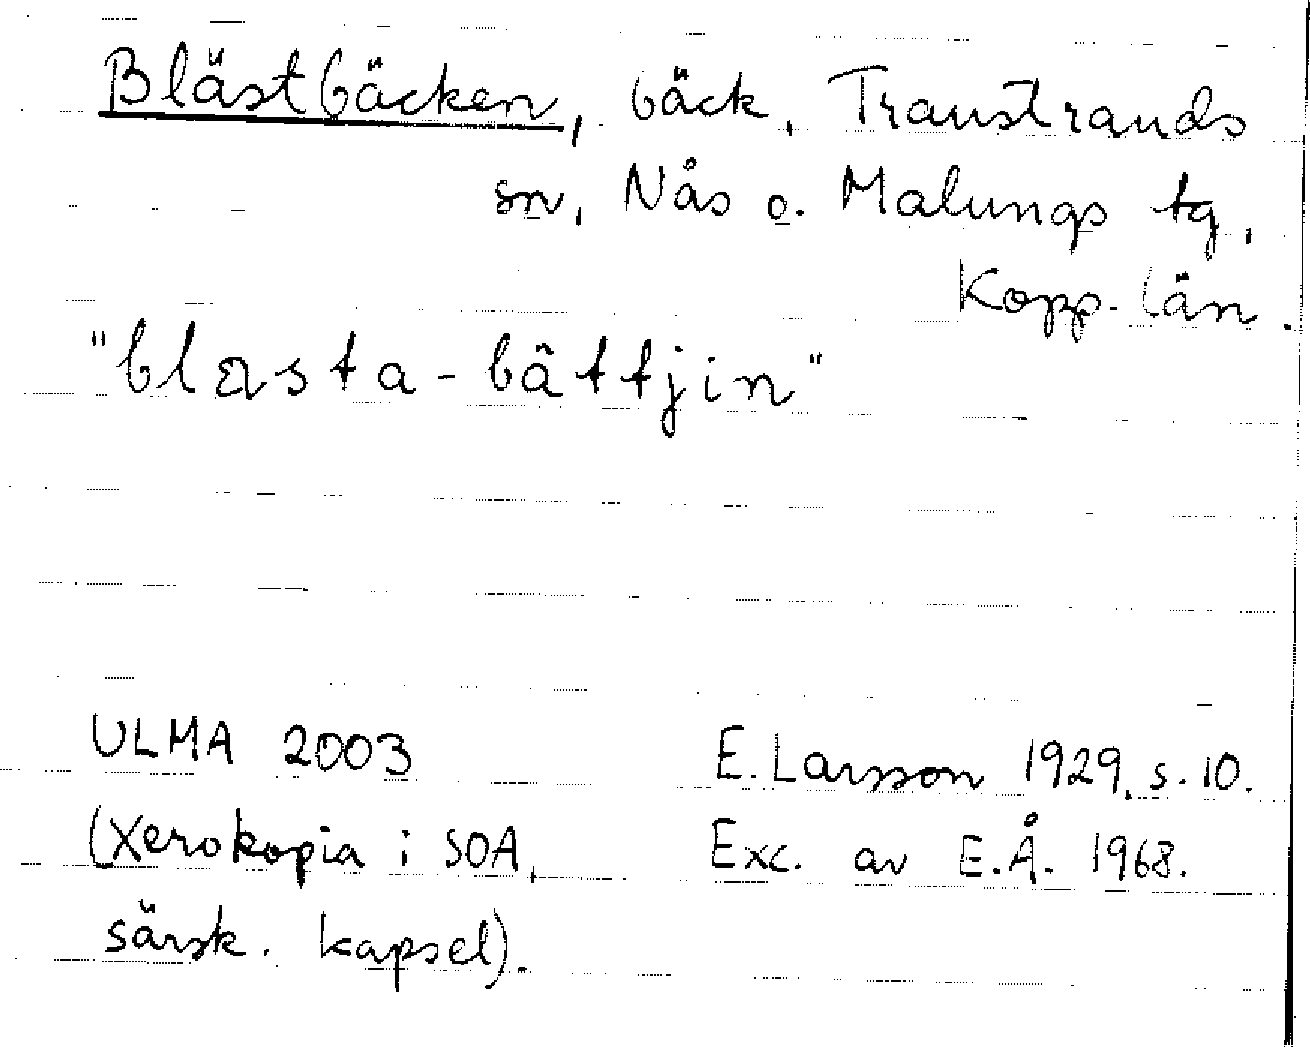 Blästbäcken, bäck, Transtrands
sn, Nås o. Malungs tg,
Kopp. län.
"blæsta-bâttjin"
ULMA 2003 E. Larsson 1929, s. 10.
(Xerokopia i SOA, Exc. av E.Å. 1968.
särsk. kapsel).